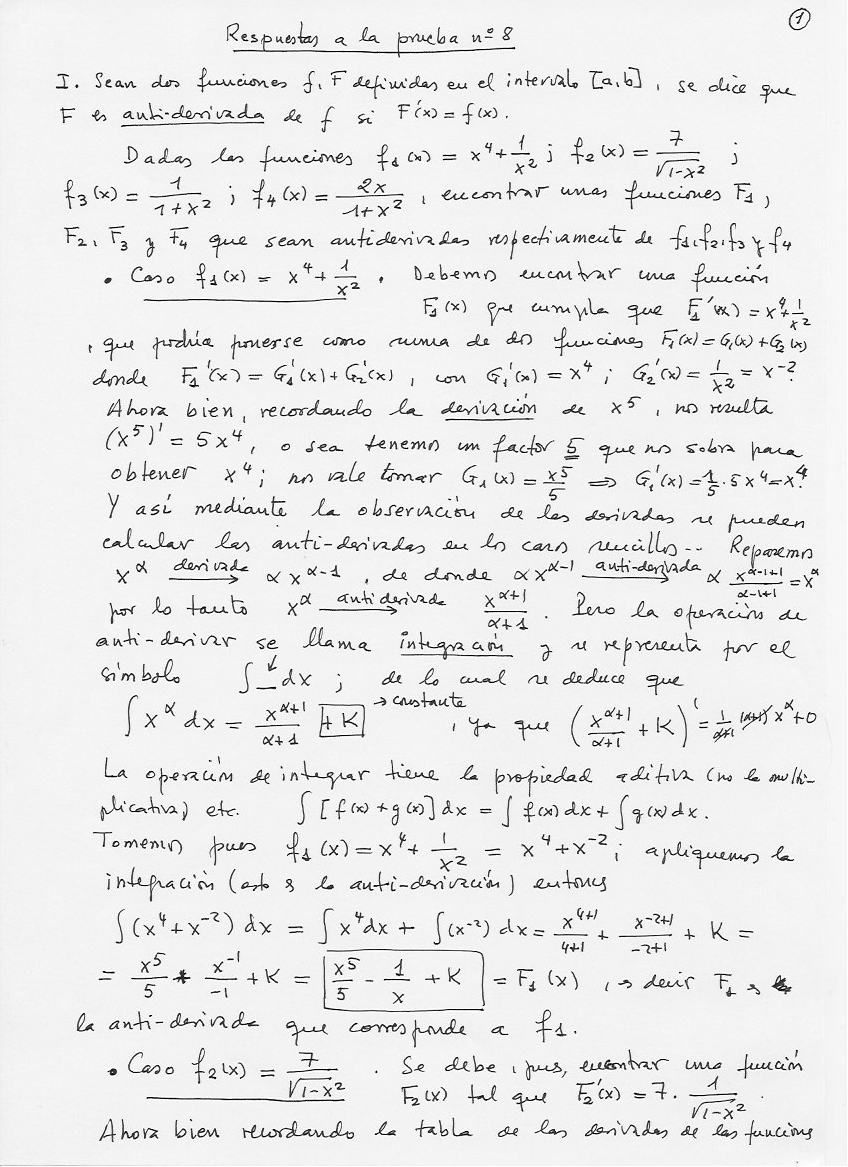 ①
Respuestas a la prueba nº 8
I. Sean dos funciones f, F definidas en el intervalo [a,b], se dice que
F es anti-derivada de f si F'(x) = f(x).
Dadas las funciones f₁(x) = x⁴ + 1/x² ; f₂(x) = 7/√(1-x²) ;
f₃(x) = 1/(1+x²) ; f₄(x) = 2x/(1+x²) , encontrar unas funciones F₁,
F₂, F₃ y F₄ que sean antiderivadas respectivamente de f₁, f₂, f₃ y f₄
• Caso f₁(x) = x⁴ + 1/x² . Debemos encontrar una función
F₁(x) que cumpla que F₁'(x) = x⁴ + 1/x²
, que podría ponerse como suma de dos funciones F₁(x) = G₁(x) + G₂(x)
donde F₁'(x) = G₁'(x) + G₂'(x) , con G₁'(x) = x⁴ ; G₂'(x) = 1/x² = x⁻².
Ahora bien, recordando la derivación de x⁵ , nos resulta
(x⁵)' = 5x⁴ , o sea tenemos un factor 5 que nos sobra para
obtener x⁴ ; nos vale tomar G₁(x) = x⁵/5 ⇒ G₁'(x) = 1/5 · 5x⁴ = x⁴.
Y así mediante la observación de las derivadas se pueden
calcular las anti-derivadas en los casos sencillos.. Repasemos
x^α derivada → αx^(α-1) , de donde αx^(α-1) anti-derivada → α x^(α-1+1)/(α-1+1) = x^α
por lo tanto x^α antiderivada → x^(α+1)/(α+1) . Pero la operación de
anti-derivar se llama integración y se representa por el
símbolo ∫ _ dx ; de lo cual se deduce que
∫ x^α dx = x^(α+1)/(α+1) + K → constante , ya que (x^(α+1)/(α+1) + K)' = 1/(α+1) (α+1) x^α + 0
La operación de integrar tiene la propiedad aditiva (no la multi-
plicativa) etc. ∫ [f(x) + g(x)] dx = ∫ f(x) dx + ∫ g(x) dx.
Tomemos pues f₁(x) = x⁴ + 1/x² = x⁴ + x⁻² ; apliquemos la
integración (esto es la anti-derivación) entonces
∫ (x⁴ + x⁻²) dx = ∫ x⁴ dx + ∫ (x⁻²) dx = x^(4+1)/(4+1) + x^(-2+1)/(-2+1) + K =
= x⁵/5 + x⁻¹/-1 + K = x⁵/5 - 1/x + K = F₁(x) , es decir F₁ es
la anti-derivada que corresponde a f₁.
• Caso f₂(x) = 7/√(1-x²) . Se debe, pues, encontrar una función
F₂(x) tal que F₂'(x) = 7 · 1/√(1-x²) .
Ahora bien recordando la tabla de las derivadas de las funciones